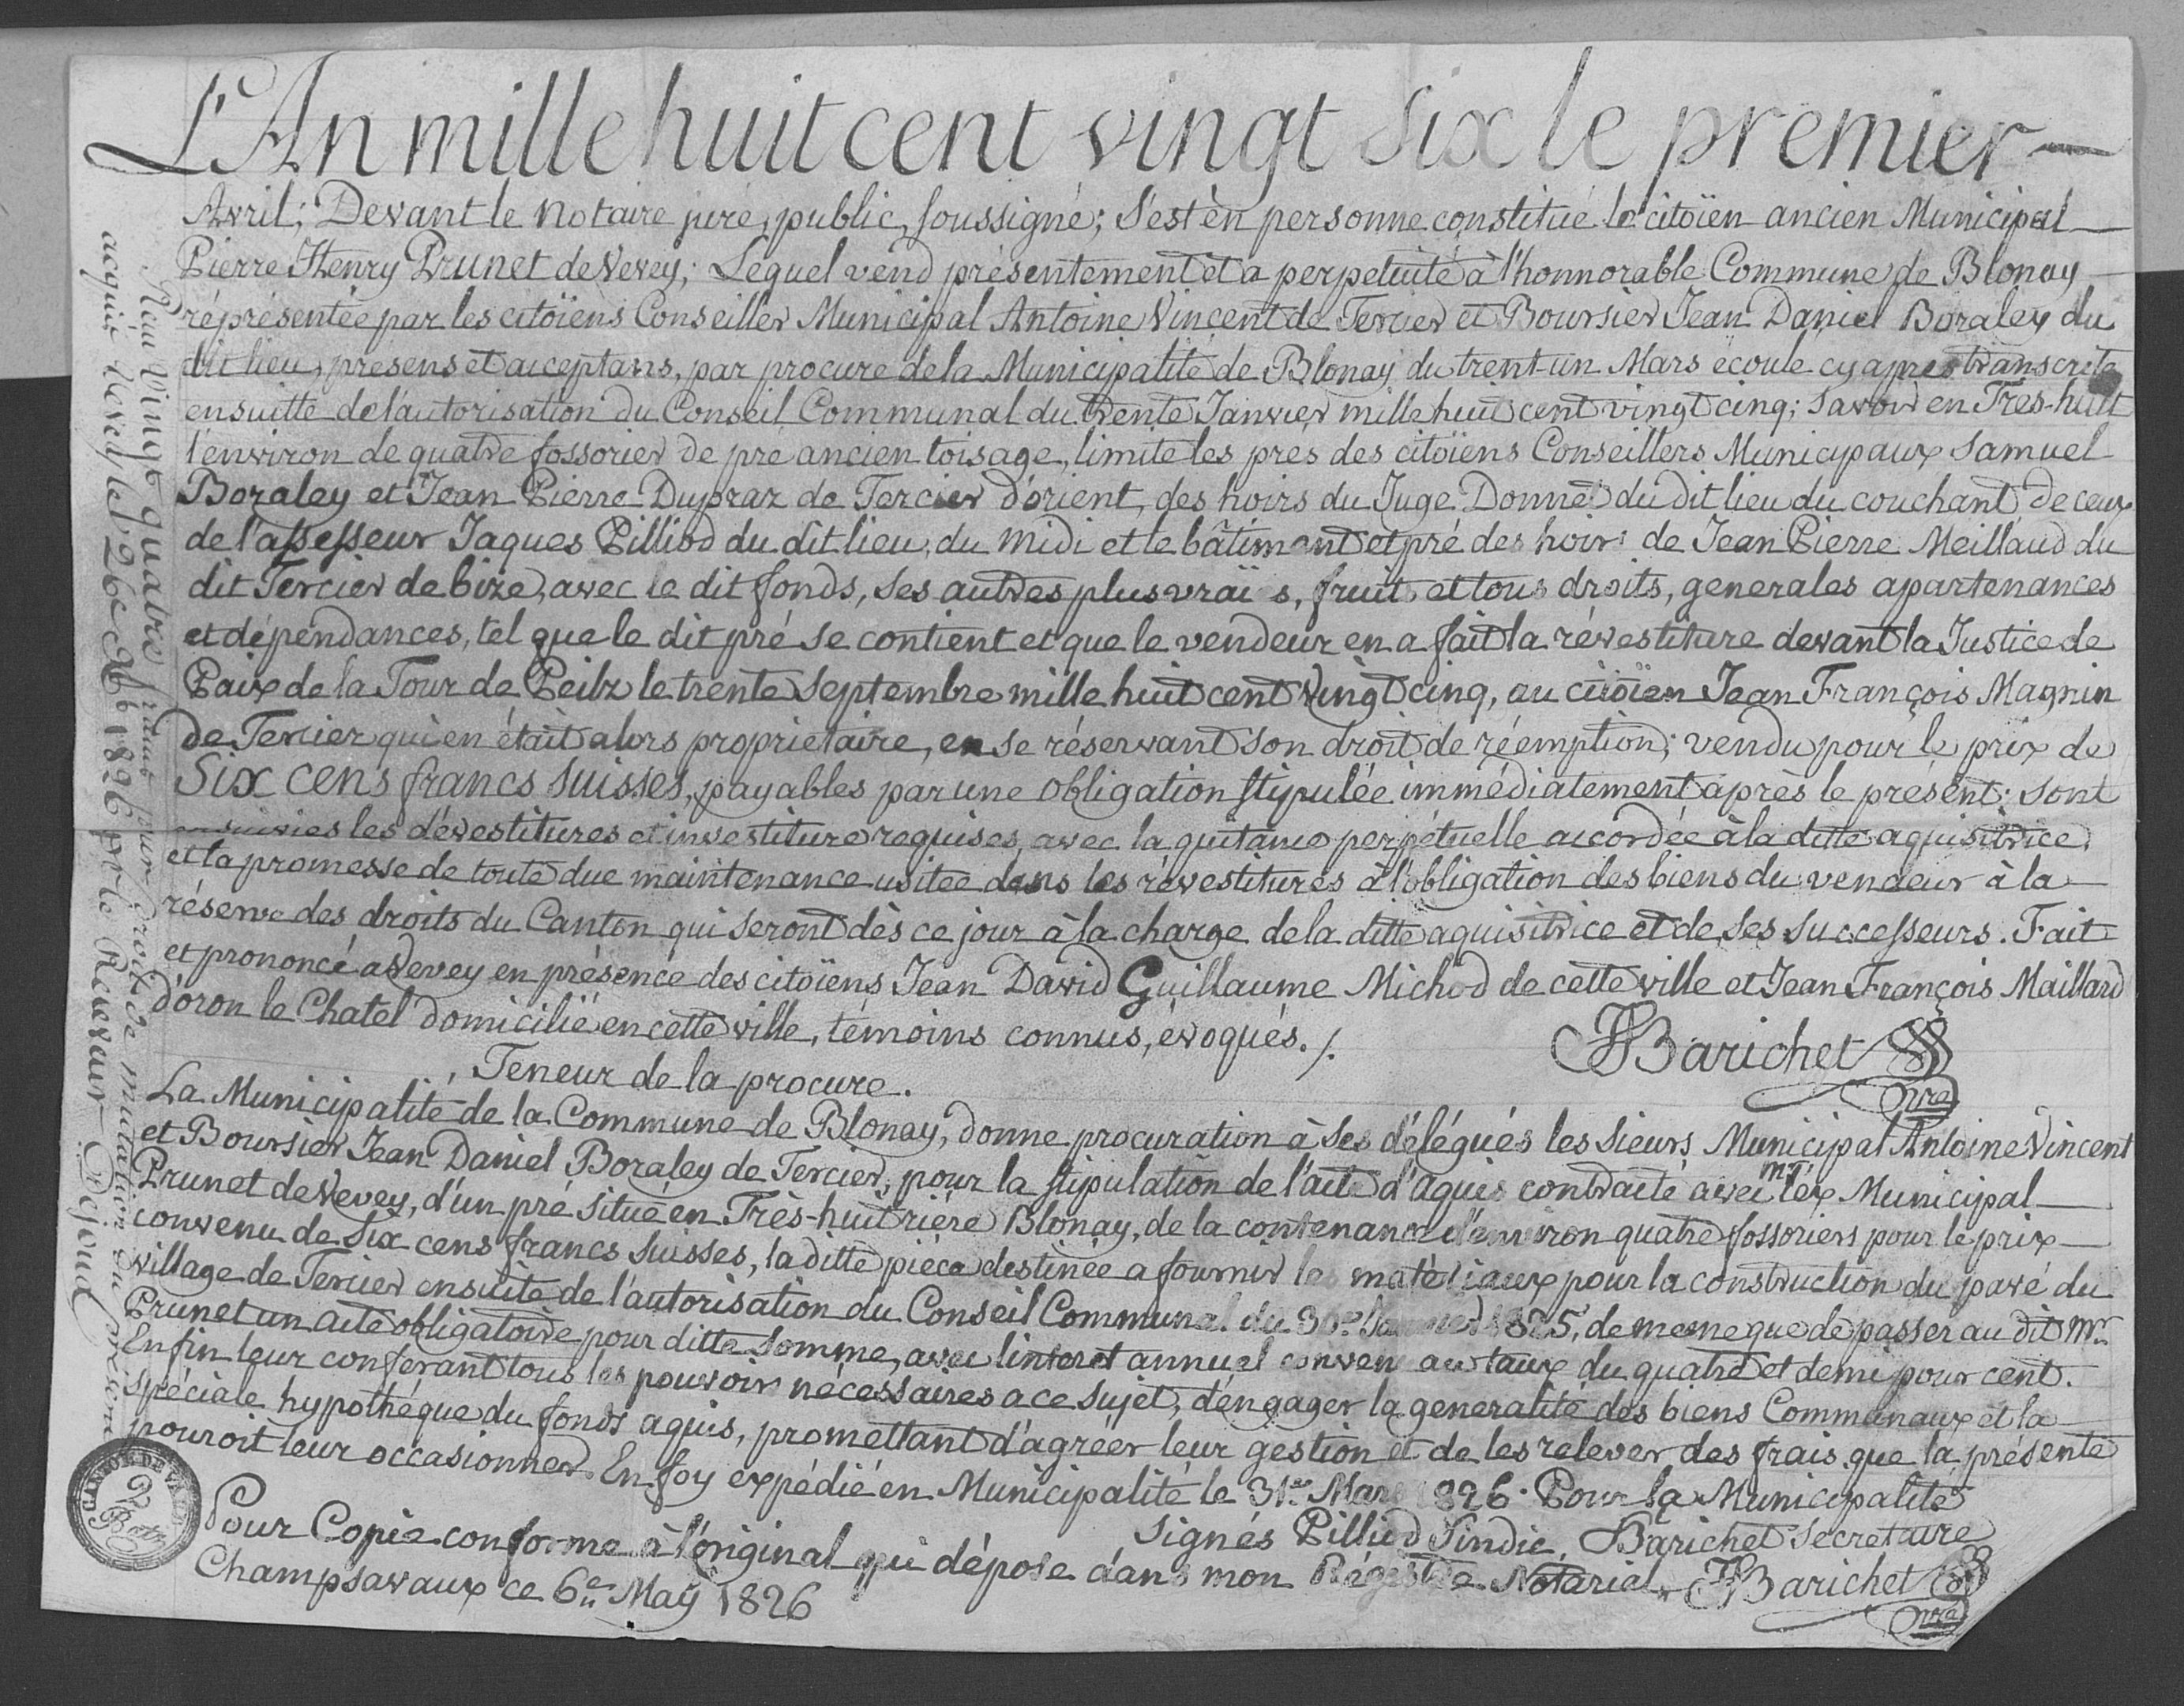 L'An mille huit cent vingt six le premier
Avril; Devant le Notaire juré, public, soussigné; S'est èn personne constitué le citoïen ancien Municipal
Pierre Henry Prunet de Vevey; Lequel vend présentement et a perpetuité à l'honnorable Commune de Blonay
réprésentée par les citoïens Conseiller Municipal Antoine Vincent de Tercier et Boursier Jean Daniel Boraley du
dit lieu, presens et acceptans, par procure de la Municipalité de Blonay du trent-un Mars écoulé cy apres transcrite
ensuitte de l'autorisation du Conseil Communal du trente Janvier mille huit cent vingt cinq; Savoir en Tres-huit
l'environ de quatre fossorier de pré ancien toisage, limite les prés des citoïens Conseillers Municipaux Samuel
Boraley et Jean Pierre Dupraz de Tercier d'orient, des hoirs du Juge Donnet du dit lieu du couchant de ceux
de l'assesseur Jaques Pilliod du dit lieu, du midi et le bâtiment et pré des hoirs de Jean Pierre Meillaud du
dit Tercier de bize, avec le dit fonds, ses autres plus vraïs, fruits et tous droits, generales apartenances
et dépendances, tel que le dit pré se contient et que le vendeur en a fait la révestiture devant la Justice de
Paix de la Tour de Peilz le trente Septembre mille huit cent vingt cinq, au citoïen Jean François Magnin
de Tercier qui en était alors propriétaire, en se réservant son droit de réemption; vendu pour le prix de
Six cens francs suisses, payables par une obligation stipulée immédiatement après le présent; sont
ensuivies les dévestitures et investiture requises, avec la quitance perpétuelle accordée à la ditte aquisitrice
et la promesse de toute due maintenance usitée dans les révestitures à l'obligation des biens du vendeur à la
réserve des droits du Canton qui seront dès ce jour à la charge de la ditte aquisitrice et de ses successeurs. Fait
et prononcé à Vevey en présence des citoïens Jean David Guillaume Michod de cette ville et Jean François Maillard
d'oron le Chatel domicilié en cette ville, témoins connus, évoqués. /.
JF Barichet
nre
Teneur de la procure.
La Municipalité de la Commune de Blonay, donne procuration à ses délégués les sieurs Municipal Antoine Vincent
et Boursier Jean Daniel Boraley de Tercier, pour la stipulation de l'acte d'aquis contracté avec mr l'ex Municipal
Prunet de Vevey, d'un pré situé en Très-huit rière Blonay, de la contenance d'environ quatre fossoriers pour le prix
convenu de Six cens francs suisses, la ditte pièce destinée a fournir les matériaux pour la construction du pavé du
village de Tercier ensuite de l'autorisation du Conseil Communal du 30e Janvier 1825, de meme que de passer au dit Mr
Prunet un acte obligatoire pour ditte somme, avec linteret annuel conven au taux du quatre et demi pour cent.
Enfin leur conferant tous les pouvoirs nécessaires a ce sujet, d'engager la generalité des biens Communaux et la
spéciale hypothéque du fonds aquis, promettant d'agréer leur gestion et de les relever des frais que la présente
pouroit leur occasionner. En foy expédié en Municipalité le 31e Mars 1826. Pour la Municipalité
Signés Pilliod Sindic, Barichet Secretaire
Pour Copie conforme à l'original qui dépose dans mon Régistre Notarial, JF Barichet
Champsavaux ce 6e May 1826
nre
Reçu Vingt quatre francs pour droit de mutation du présent
acquis Vevey le 26e 1826 pr le Receveur Dejoux
CANTON DE VAUD
2
Batz